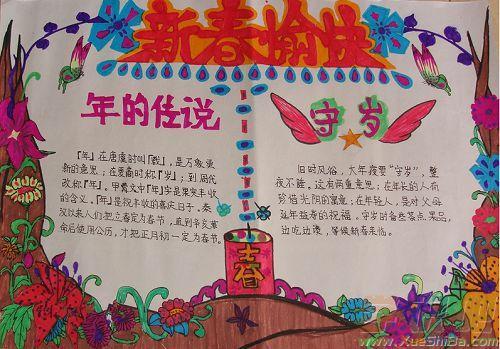 新春愉快
年的传说
「年」在唐虞时叫「载」，是万象更
新的意思；在夏朝时称「岁」；到周代
改称「年」。甲骨文中「年」字是果实丰收
的含义。「年」是祝丰收的喜庆日子。秦
汉以来人们把立春定为春节，直到辛亥革
命后使用公历，才把正月初一定为春节。
守岁
旧时风俗，大年夜要“守岁”，整
夜不睡。这有两重意思；在年长的人有
珍惜光阴的寓意；在年轻人，是对父母
延年益寿的祝福。守岁时备些茶点果品，
边吃边谈，等候新春来临。
春
www.XueShiBa.com